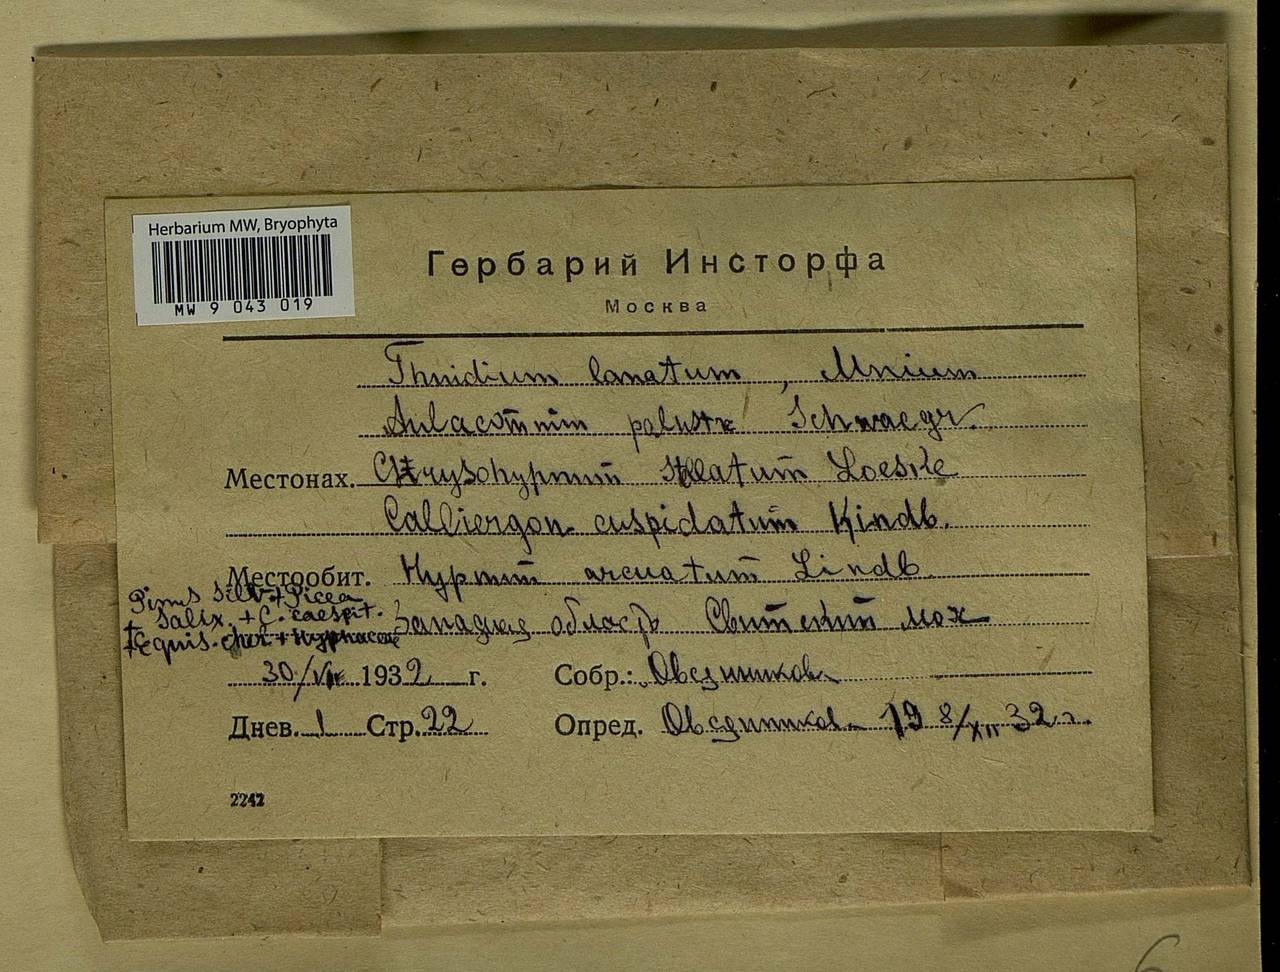 Herbarium MW, Bryophyta
MW 9 043 019
Гербарий Инсторфа
Москва
Thuidium lanatum, Mnium
Aulacomnium palustre Schwaegr.
Местонах. Chrysohypnum stellatum Loeske
Calliergon cuspidatum Kindb.
Местообит. Hypnum arcuatum Lindb.
Pinus silv + Picea
+ Salix. + C. caespit.
+ Equis. + Hypnaceae
Западная область Свитский мох
30/VII 1932 г. Собр.: Овсянников
Днев. 1 Стр. 22 Опред. Овсянников 19 8/XII 32 г.
2242
6